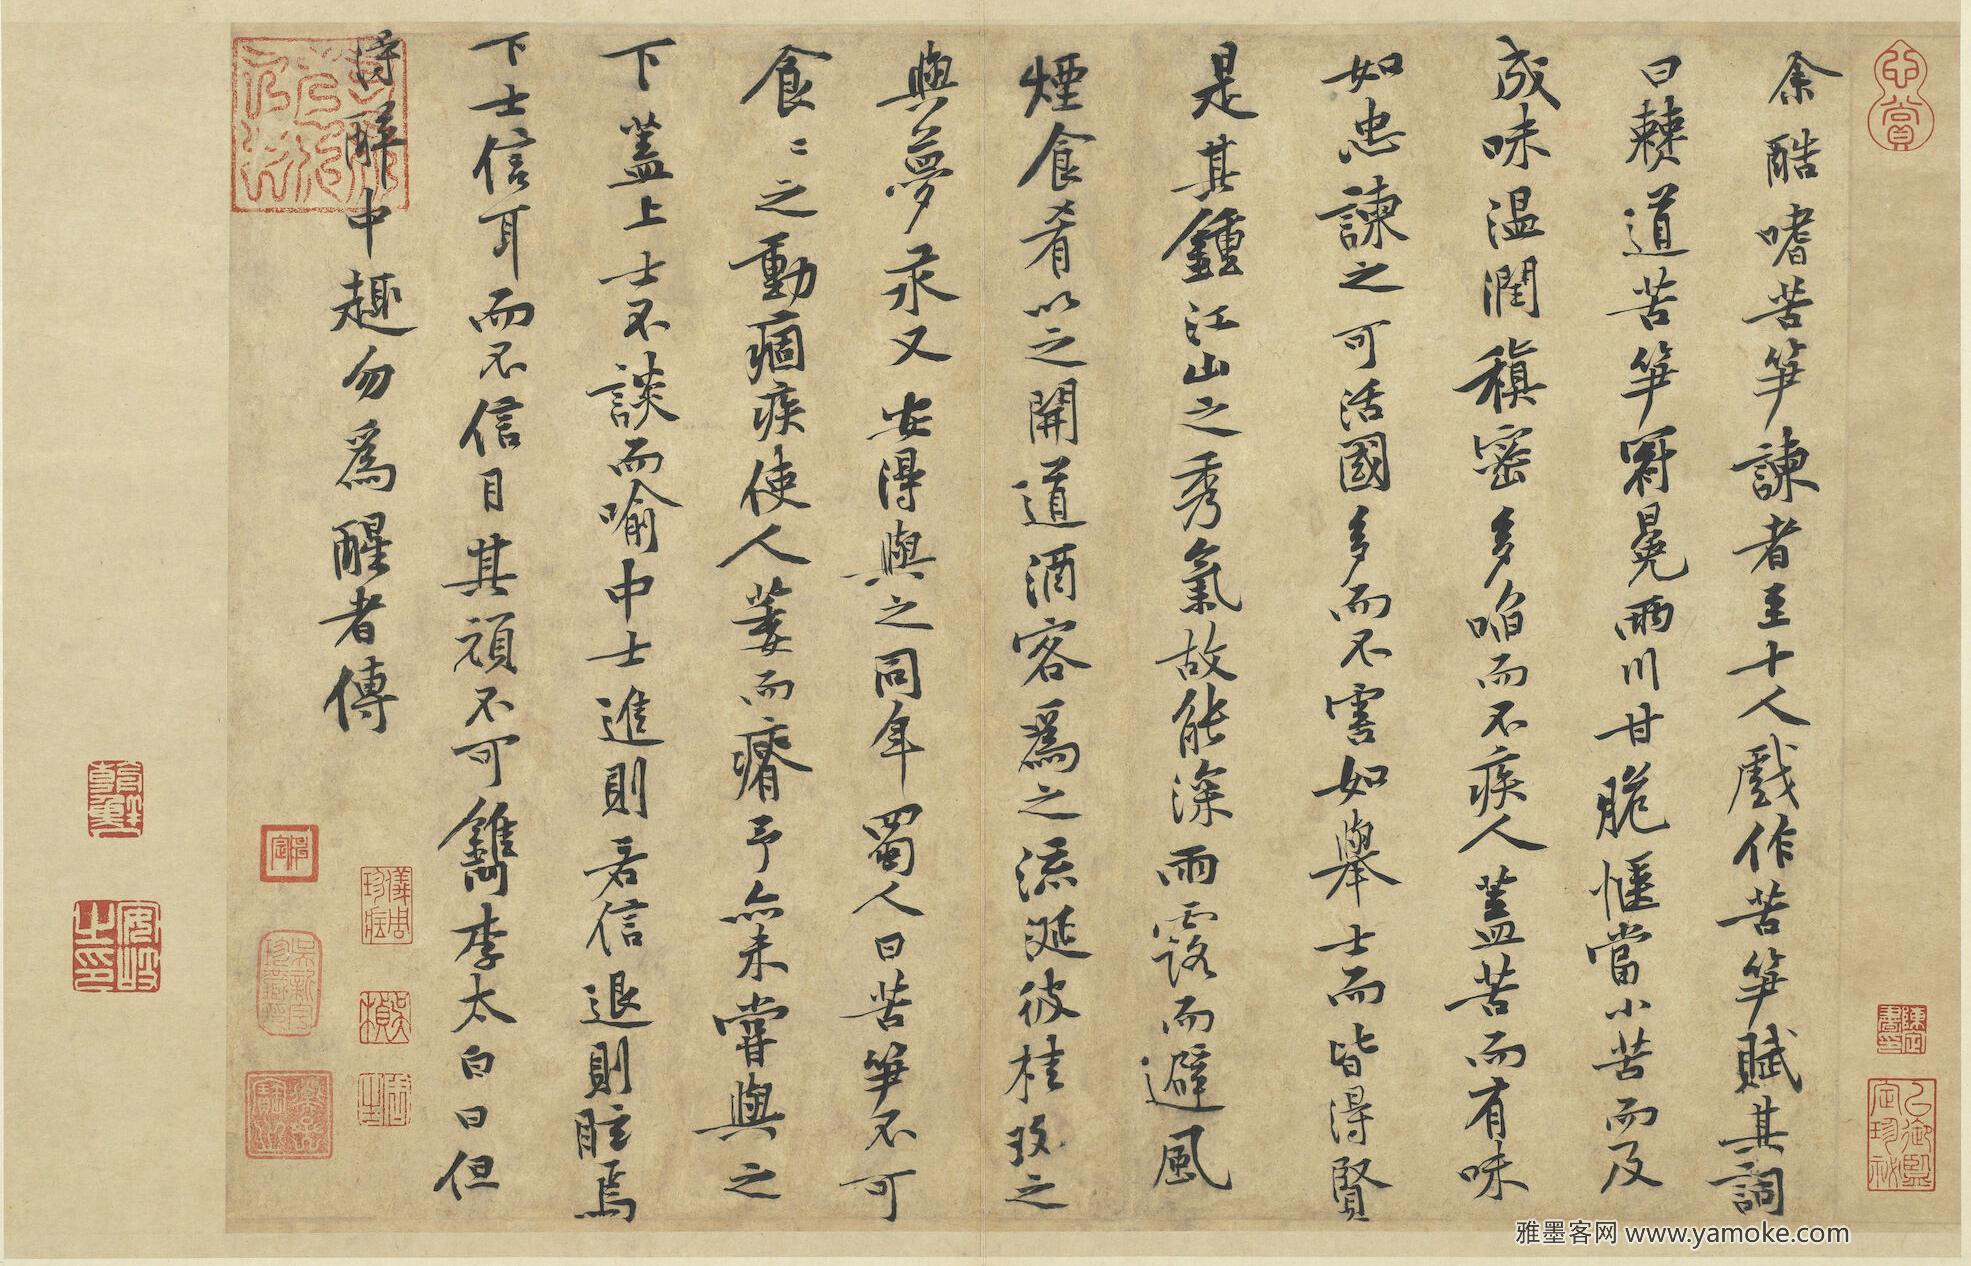 余酷嗜苦笋諫者至十人戲作苦笋賦其詞
曰僰道苦笋冠冕兩川甘脆愜當小苦而及
成味温潤稹密多啗而不疾人蓋苦而有味
如忠諫之可活國多而不害如舉士而皆得賢
是其鍾江山之秀氣故能深雨露而避風
煙食肴以之開道酒客爲之流涎彼桂玫之
與夢汞又安得與之同年蜀人曰苦笋不可
食〻之動痼疾使人萎而瘠予亦未嘗與之
下蓋上士不談而喻中士進則若信退則眩焉
下士信耳而不信目其頑不可鐫李太白曰但
得醉中趣勿爲醒者傳
雅墨客网 www.yamoke.com